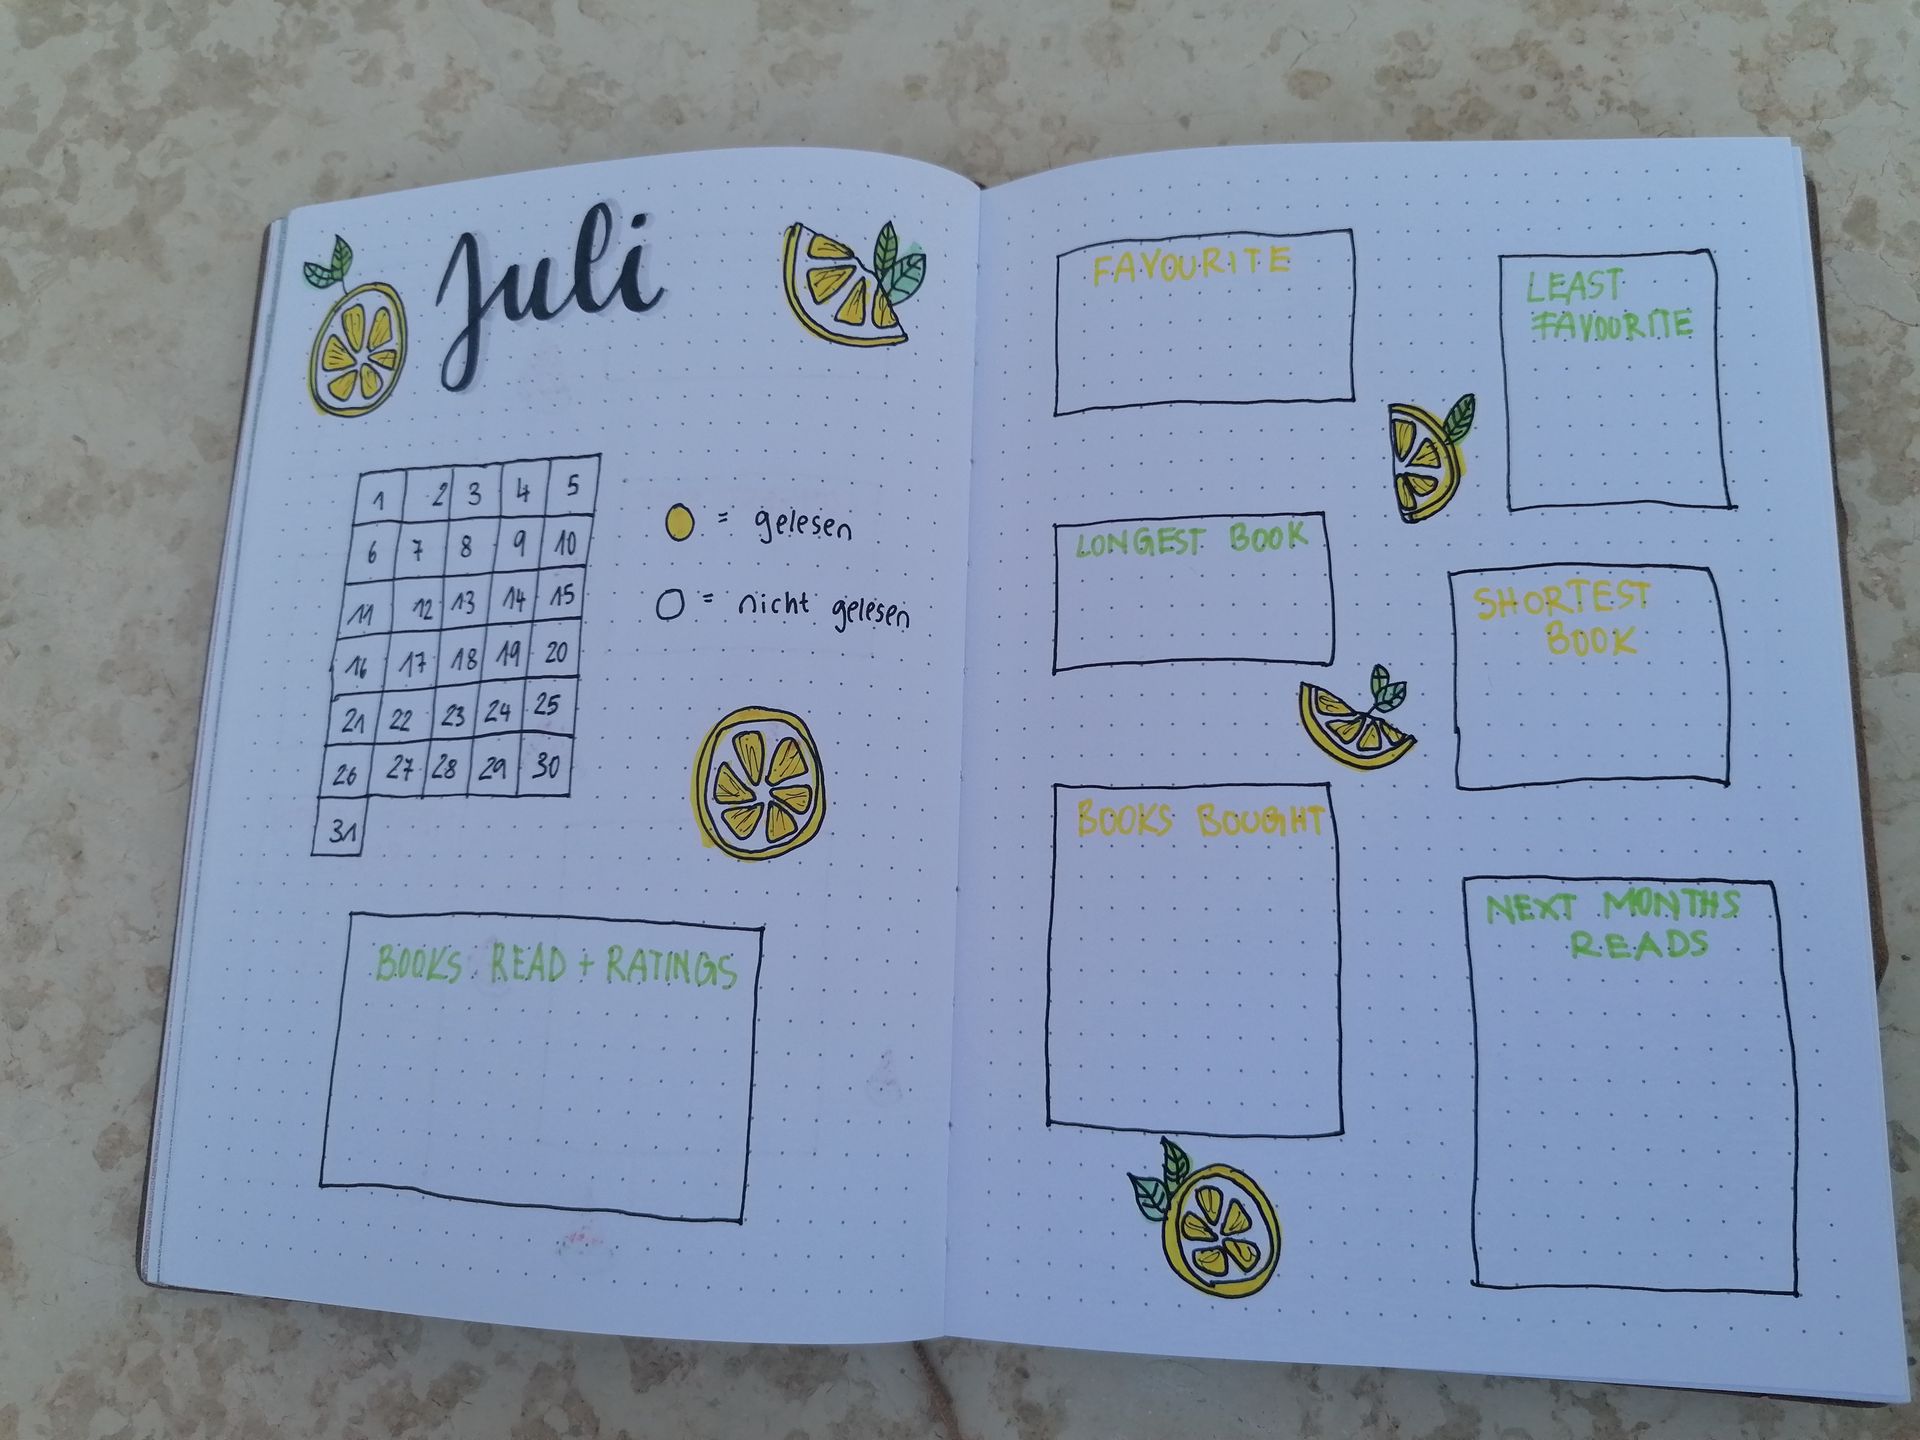 Juli
1 2 3 4 5
6 7 8 9 10
11 12 13 14 15
16 17 18 19 20
21 22 23 24 25
26 27 28 29 30
31
= gelesen
= nicht gelesen
BOOKS READ + RATINGS
FAVOURITE
LEAST
FAVOURITE
LONGEST BOOK
SHORTEST
BOOK
BOOKS BOUGHT
NEXT MONTHS
READS